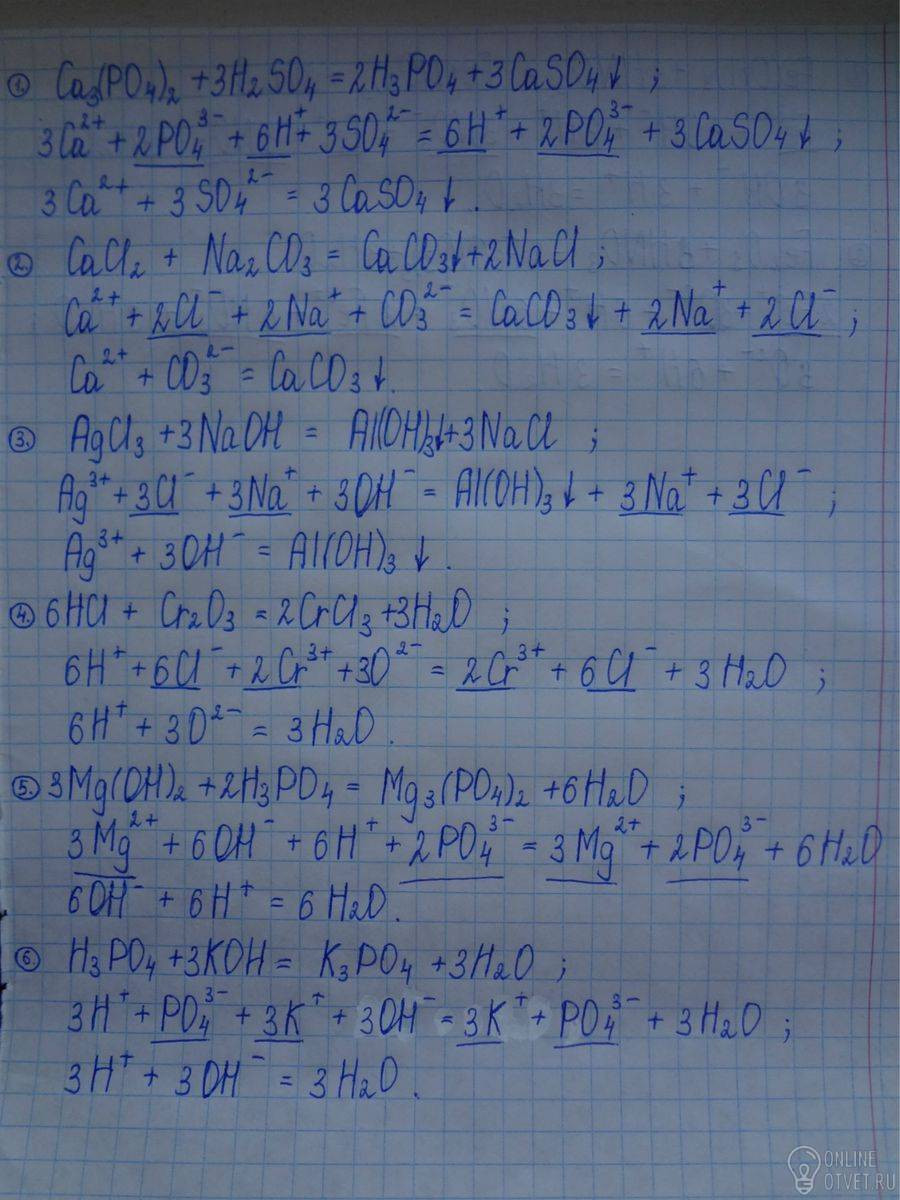 1. Ca₃(PO₄)₂ + 3H₂SO₄ = 2H₃PO₄ + 3CaSO₄↓ ;
3Ca²⁺ + 2PO₄³⁻ + 6H⁺ + 3SO₄²⁻ = 6H⁺ + 2PO₄³⁻ + 3CaSO₄↓ ;
3Ca²⁺ + 3SO₄²⁻ = 3CaSO₄↓ .
2. CaCl₂ + Na₂CO₃ = CaCO₃↓ + 2NaCl ;
Ca²⁺ + 2Cl⁻ + 2Na⁺ + CO₃²⁻ = CaCO₃↓ + 2Na⁺ + 2Cl⁻ ;
Ca²⁺ + CO₃²⁻ = CaCO₃↓.
3. AgCl₃ + 3NaOH = Al(OH)₃↓ + 3NaCl ;
Ag³⁺ + 3Cl⁻ + 3Na⁺ + 3OH⁻ = Al(OH)₃↓ + 3Na⁺ + 3Cl⁻ ;
Ag³⁺ + 3OH⁻ = Al(OH)₃↓ .
4. 6HCl + Cr₂O₃ = 2CrCl₃ + 3H₂O ;
6H⁺ + 6Cl⁻ + 2Cr³⁺ + 3O²⁻ = 2Cr³⁺ + 6Cl⁻ + 3H₂O ;
6H⁺ + 3O²⁻ = 3H₂O .
5. 3Mg(OH)₂ + 2H₃PO₄ = Mg₃(PO₄)₂ + 6H₂O ;
3Mg²⁺ + 6OH⁻ + 6H⁺ + 2PO₄³⁻ = 3Mg²⁺ + 2PO₄³⁻ + 6H₂O
6OH⁻ + 6H⁺ = 6H₂O.
6. H₃PO₄ + 3KOH = K₃PO₄ + 3H₂O ;
3H⁺ + PO₄³⁻ + 3K⁺ + 3OH⁻ = 3K⁺ + PO₄³⁻ + 3H₂O ;
3H⁺ + 3OH⁻ = 3H₂O .
ONLINE
OTVET.RU